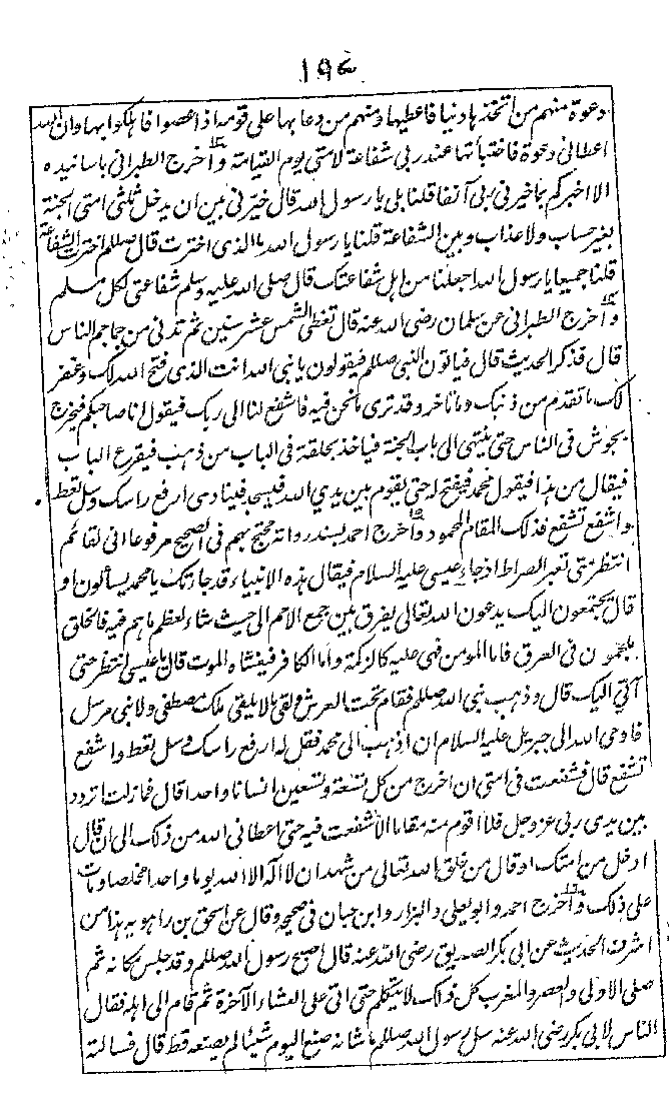 ١٩٤
دعوة منهم من اتخذها دنيا فاعطيها ومنهم من دعا بها على قومه اذا عصوا فاهلكوا بها وان الله
اعطانى دعوة فاختبأتها عند ربى شفاعة لامتى يوم القيامة واخرج الطبرانى باسانيده
الا اخبركم بما خيرنى ربى آنفا قلنا بلى يا رسول الله قال خيرنى بين ان يدخل ثلثى امتى الجنة
بغير حساب ولا عذاب وبين الشفاعة قلنا يا رسول الله ما الذى اخترت قال صللم اخترت الشفاعة
قلنا جميعا يا رسول الله اجعلنا من اهل شفاعتك قال صلى الله عليه وسلم شفاعتى لكل مسلم
واخرج الطبرانى عن سلمان رضى الله عنه قال تعطى الشمس عشر سنين ثم تدنى من جماجم الناس
قال فذكر الحديث قال فياتون النبى صللم فيقولون يا نبى الله انت الذى فتح الله لك وغفر
لك ما تقدم من ذنبك وما تاخر وقد ترى ما نحن فيه فاشفع لنا الى ربك فيقول انا صاحبكم فيخرج
يحوش فى الناس حتى ينتهى الى باب الجنة فياخذ بحلقة فى الباب من ذهب فيقرع الباب
فيقال من هذا فيقول محمد فيفتح له حتى يقوم بين يدي الله فيسجد فينادى ارفع راسك وسل تعط
واشفع تشفع فذلك المقام المحمود واخرج احمد بسند رواته محتج بهم فى الصحيح مرفوعا انى لقائم
انتظر متى تعبر الصراط اذ جاء عيسى عليه السلام فيقال هذه الانبياء قد جاءتك يا محمد يسألون او
قال يجتمعون اليك يدعون الله تعالى يفرق بين جمع الامم الى حيث شاء لعظم ما هم فيه فالخلق
ملجمون فى العرق فاما المومن فهى عليه كالزكمة واما الكافر فيغشاه الموت قال يا عيسى انتظر حتى
آتى اليك قال وذهب نبى الله صللم فقام تحت العرش ولقى ما لا يلقى ملك مصطفى ولا نبى مرسل
فاوحى الله الى جبريل عليه السلام ان اذهب الى محمد فقل له ارفع راسك وسل تعط واشفع
تشفع قال فشفعت فى امتى ان اخرج من كل تسعة وتسعين انسانا واحدا قال فما زلت اتردد
بين يدى ربى عز وجل فلا اقوم منه مقاما الا شفعت فيه حتى اعطانى الله من ذلك الى ان قال
ادخل من امتك او قال من خلق الله تعالى من شهد ان لا اله الا الله يوما واحدا مخلصا ومات
على ذلك واخرج احمد وابويعلى والبزار وابن حبان فى صحيحه وقال عن اسحق بن راهويه هذا من
اشرف الحديث عن ابى بكر الصديق رضى الله عنه قال اصبح رسول الله صللم وقد جلس مكانه ثم
صلى الاولى والعصر والمغرب كل ذلك لا يتكلم حتى اتى على العشاء الآخرة ثم قام الى اهله فقال
الناس لابى بكر رضى الله عنه سل رسول الله صللم ما شانه صنع اليوم شيئا لم يصنعه قط قال فسالته